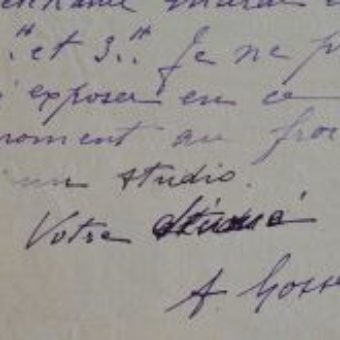 2 et 3. Je ne p
exposer en ce
moment au froi
un studio.
Votre dévoué
A. Goss